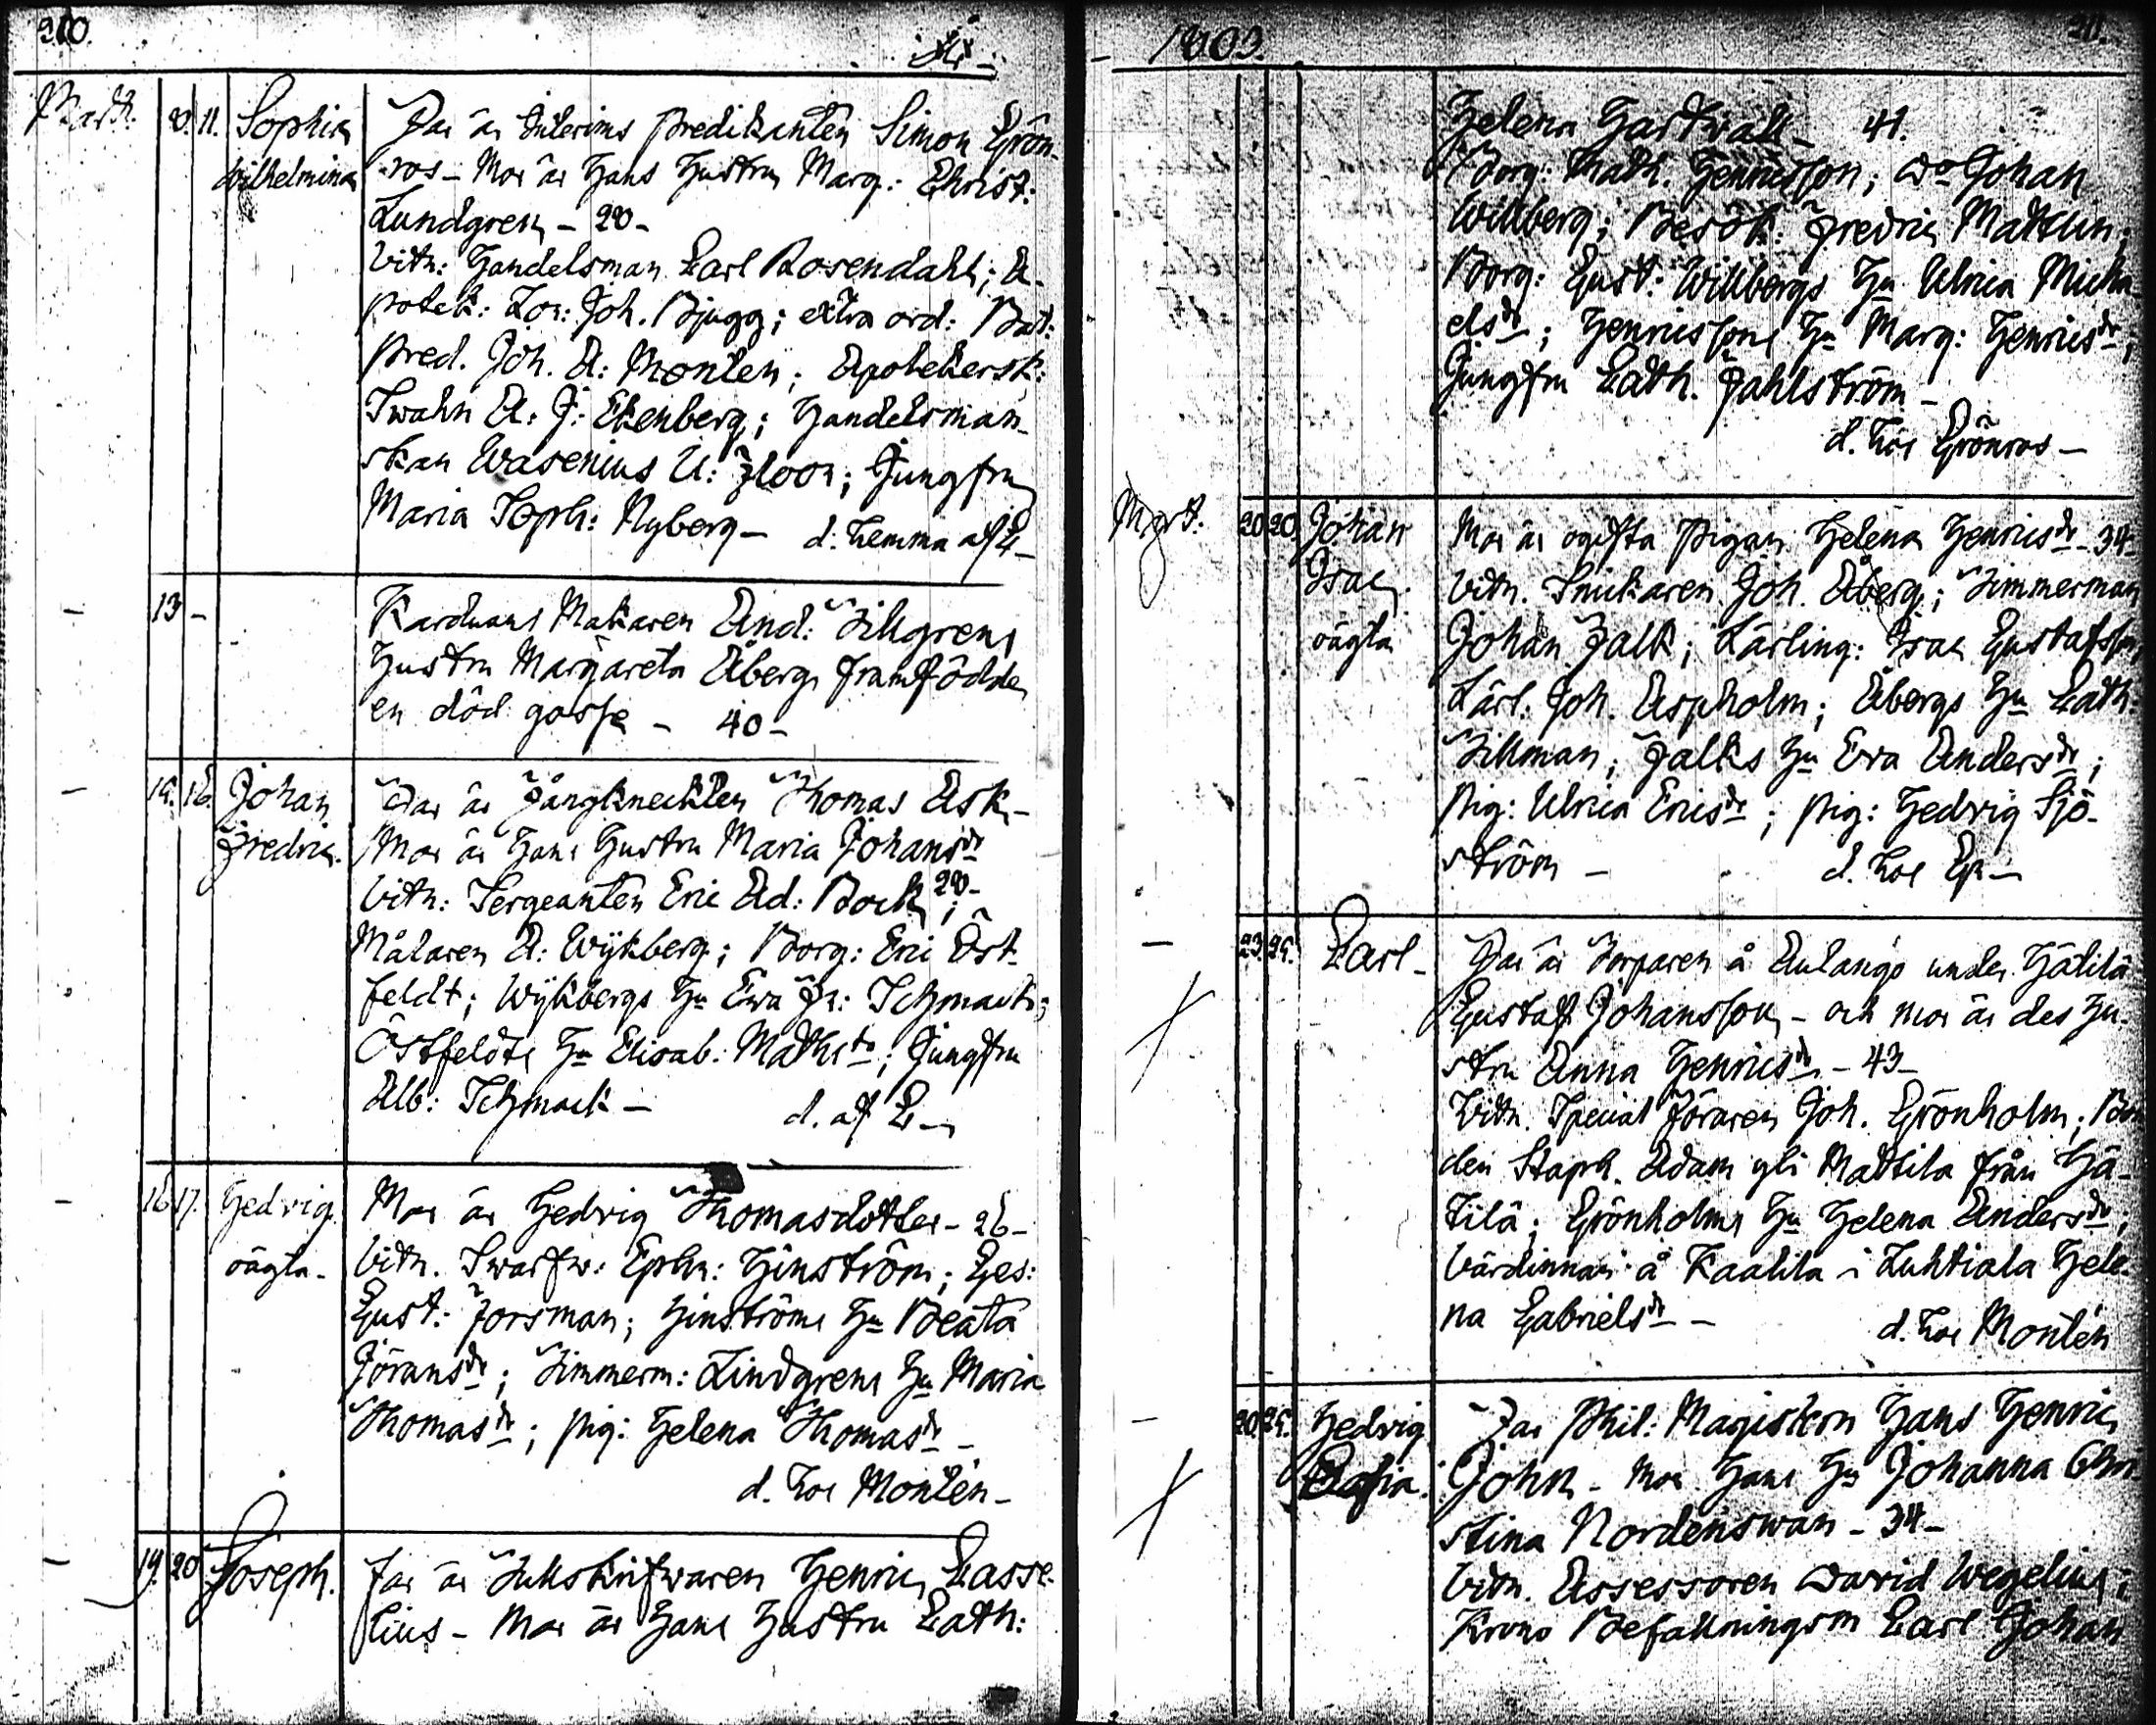 210.
Mart. 8. 11. Sophia Wilhelmina
Far är Interims Predikanten Simon Grön-
ros - Mor är Hans Hustru Marg: Christ:
Lundgren - 28 -
Vittn: Handelsman Carl Rosendahl; A-
potek: Joh. Bjugg; extra ord: Bat:
Pred. Joh. A: Monten; Apotekersk:
Swahn A: J: Ekenberg; Handelsman-
skan Wasenius U: Floor; Jungfru
Maria Soph: Nyberg - d. hemma af
13 -
Karduans Makaren And: Tillgrens
Hustru Margareta Åberg framfödde
en död gosse - 40 -
16. Johan Fredric.
Far är Fångknechten Thomas Ask -
Mor är Hans Hustru Maria Johansdr
28 -
Vittn: Sergeanten Eric Ad: Bock;
Målaren A: Wykberg; Borg: Eric Öst-
feldt; Wykbergs Hu Ewa Schmacht;
Östfeldts Hu Elisab: Mathsdr; Jungfru
Alb: Schmack -
d. af
16 17. Hedvig oägta -
Mor är Hedvig Thomasdotter - 26 -
Vittn. Swarfw: Ephr: Hinström; Ges:
Gust: Forsman; Hinströms Hu Beata
Göransdr; Timmerm: Lindgrens Hu Maria
Thomasdr; pig: Helena Thomasdr -
d. hos Montén -
19. 20 Joseph.
Far är Tullskrifwaren Henric Casse-
lius - Mor är Hans Hustru Cath:
1803.
211.
Helena Hartwall - 41.
Borg: Math. Henricsson; do Johan
Willberg; Besök: Fredric Mattlin;
Borg: Gust: Willbergs Hu Ulrica Micha-
elsdr; Henricssons Hu Marg: Henricsdr;
Jungfru Cath. Fahlström -
d. hos Grönros -
Mart. 20 20. Johan Isac. oägta
Mor är ogifta Pigan Helena Henricsdr - 34
Vittn. Snickaren Joh. Åberg; Timmerman
Johan Falk; Lärling: Isac Gustafsson
Lärl: Joh. Aspholm; Åbergs Hu Cath:
Tillman; Falks Hu Eva Andersdr;
pig: Ulrica Ericsdr; pig: Hedvig Sjö-
ström -
d. hos
23. 25. Carl -
Far är Torparen å Aulango under Hätilä
Gustaf Johansson - och mor är des hu-
stru Anna Henricsdr - 43 -
Vittn. Special Föraren Joh. Grönholm; Bon
den Staph. Adam gli Mattila från Hä-
tilä; Grönholms Hu Helena Andersdr;
Värdinnan å Kaalila i Luhtiala Hele-
na Gabrielsdr -
d. hos Montén
20. 25. Hedvig Sofia.
Far Phil: Magistern Hans Henric
John - Mor Hans Hu Johanna Chri
stina Nordenswan - 34 -
Vittn. Assessoren David Wegelius;
Krono Befallningsm Carl Johan